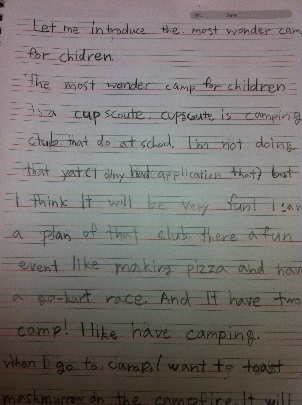 No. Date
Let me introduce the most wonder cam
for chidren.
The most wonder camp for children
Is a cup scoute. cupscoute is camping
club that do at school. I'm not doing
that yat(I only had application that) but
I think It will be very fun! I saw
a plan of that club there a fun
event like making pizza and have
a go-kart race. And It have two
camp! I like have camping.
when I go to camp, I want to toast
mashmurrow on the campfire. It will